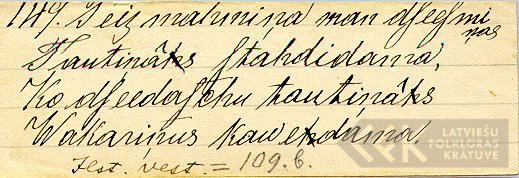 149. Teiz mahmiņa man dseesmiņas
Tautinâks stahdidama,
Ko dseedaschu tautinâks
Wakariņus kawedama.
Ilst. vest. = 109. b.
LATVIEŠU
FOLKLORAS
KRĀTUVE